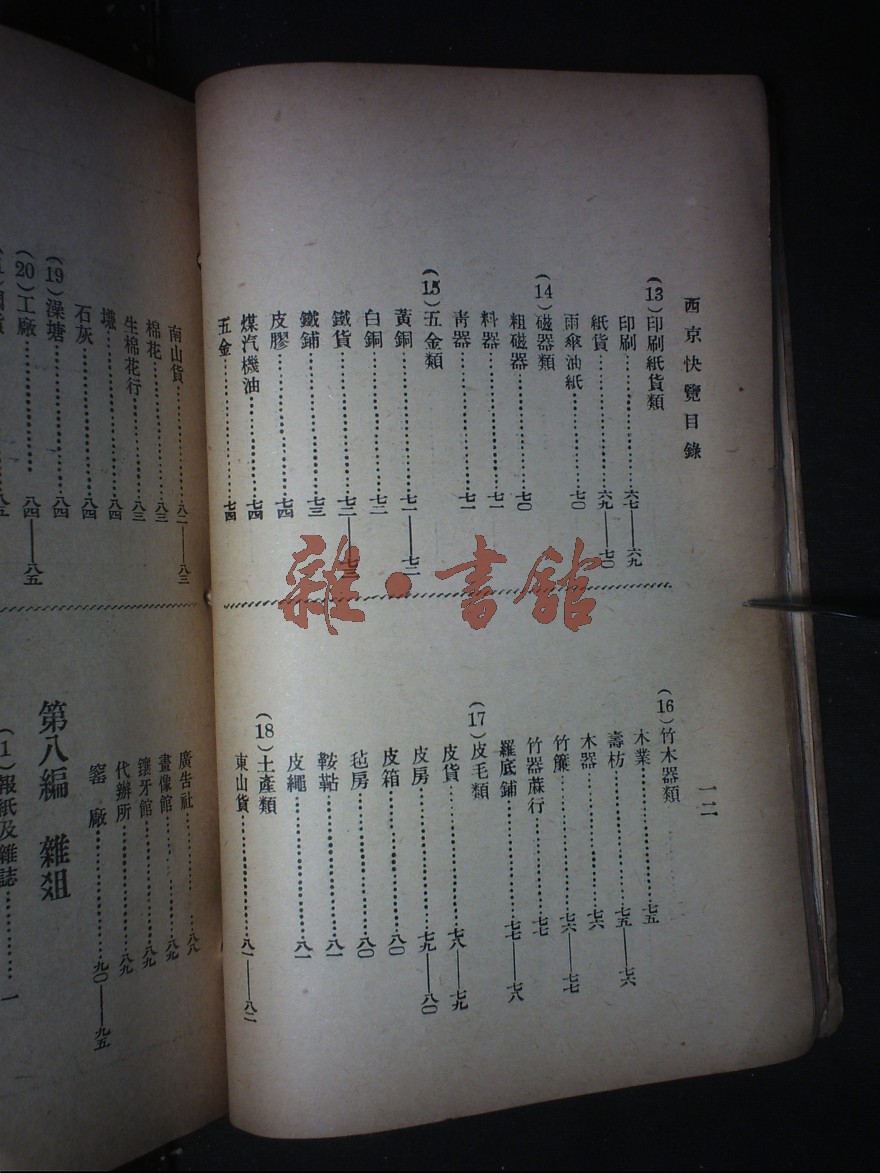 西京快覽目錄
一二
(13)印刷紙貨類
印刷……六七——六九
紙貨……六九——七〇
雨傘油紙……七〇
(14)磁器類
粗磁器……七〇
料器……七一
靑器……七一
(15)五金類
黃銅……七一——七二
白銅……七二
鐵貨……七二——七三
鐵鋪……七三
皮膠……七四
煤汽機油……七四
五金……七四
(16)竹木器類
木業……七五
壽枋……七五——七六
木器……七六
竹簾……七六——七七
竹器蔴行……七七
羅底鋪……七七——七八
(17)皮毛類
皮貨……七八——七九
皮房……七九——八〇
皮箱……八〇
毡房……八〇
鞍韂……八一
皮繩……八一
(18)土產類
東山貨……八一——八二
雜·書館
南山貨……八二——八三
棉花……八三
生棉花行……八三
石灰……八四
(19)澡塘……八四
(20)工廠……八四——八五
廣告社……八八
畫像館……八九
鑲牙館……八九
代辦所……八九
窰廠……九〇——九五
第八編 雜俎
(1)報紙及雜誌……一